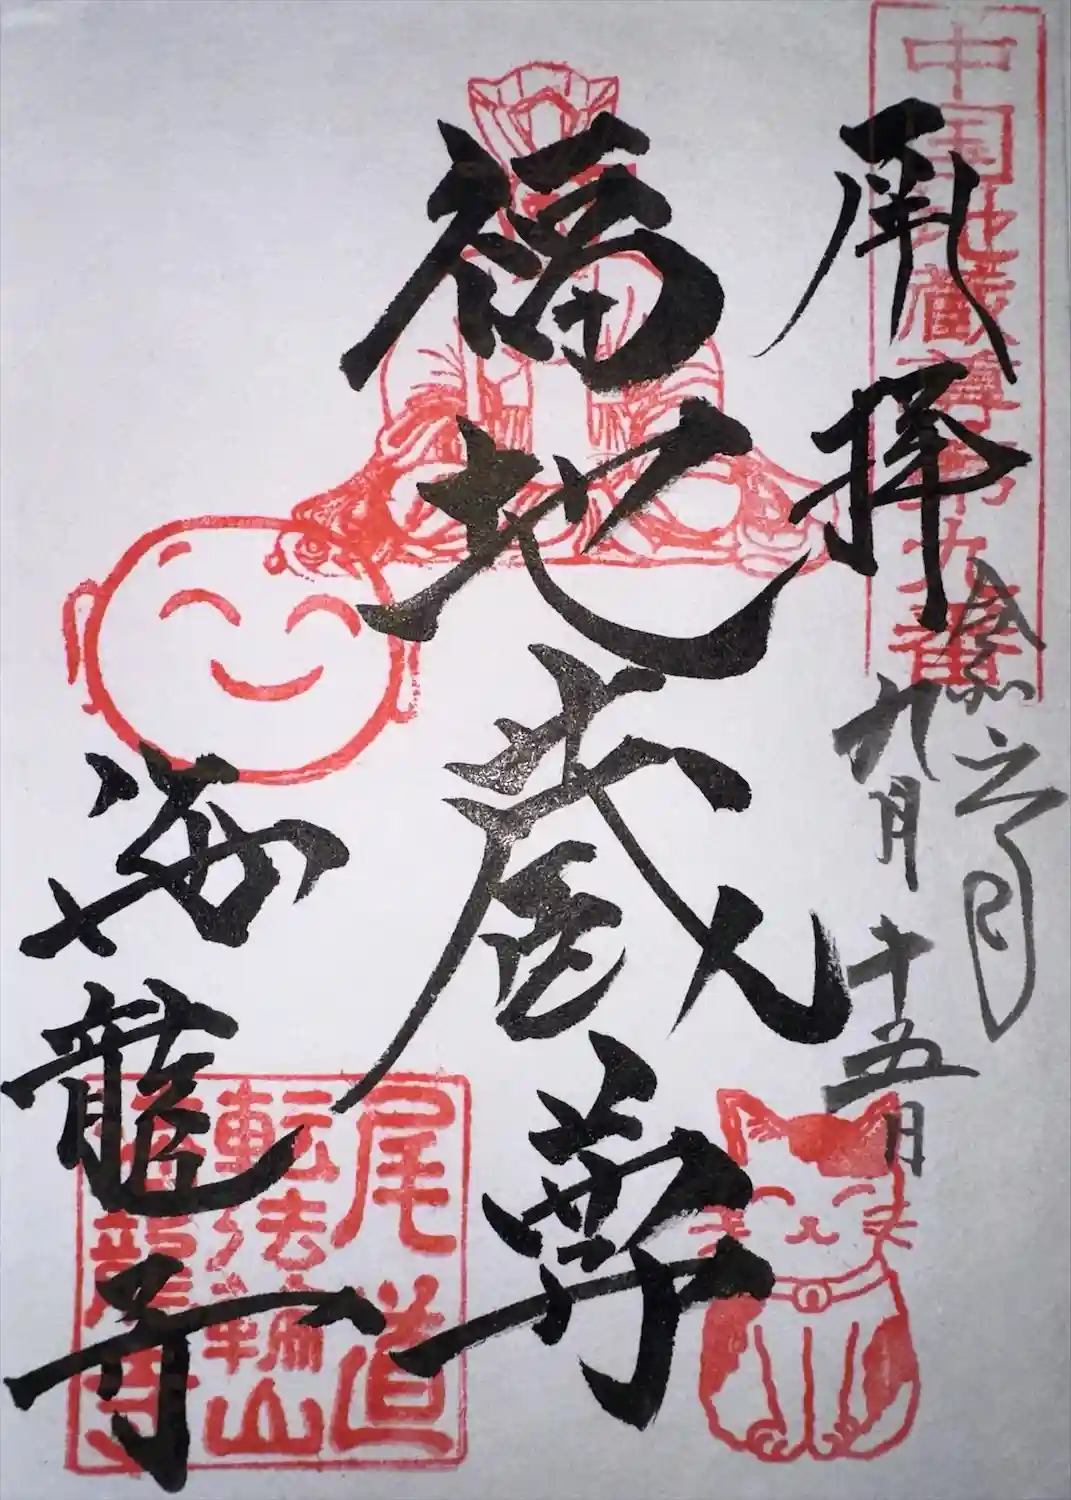 中国地蔵尊第九番
奉拝
令和
九月十五日
福地蔵尊
海龍寺
尾道
転法輪山
海龍寺